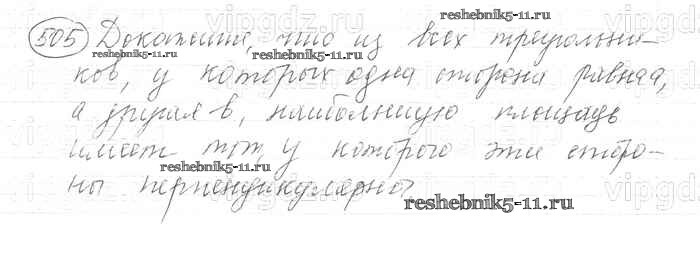 505 Докажите, что из всех треугольни-
ков, у которых одна сторона равна a,
а другая b, наибольшую площадь
имеет тот, у которого эти сторо-
ны перпендикулярны
reshebnik5-11.ru
reshebnik5-11.ru
reshebnik5-11.ru
reshebnik5-11.ru
reshebnik5-11.ru
vipgdz.ru